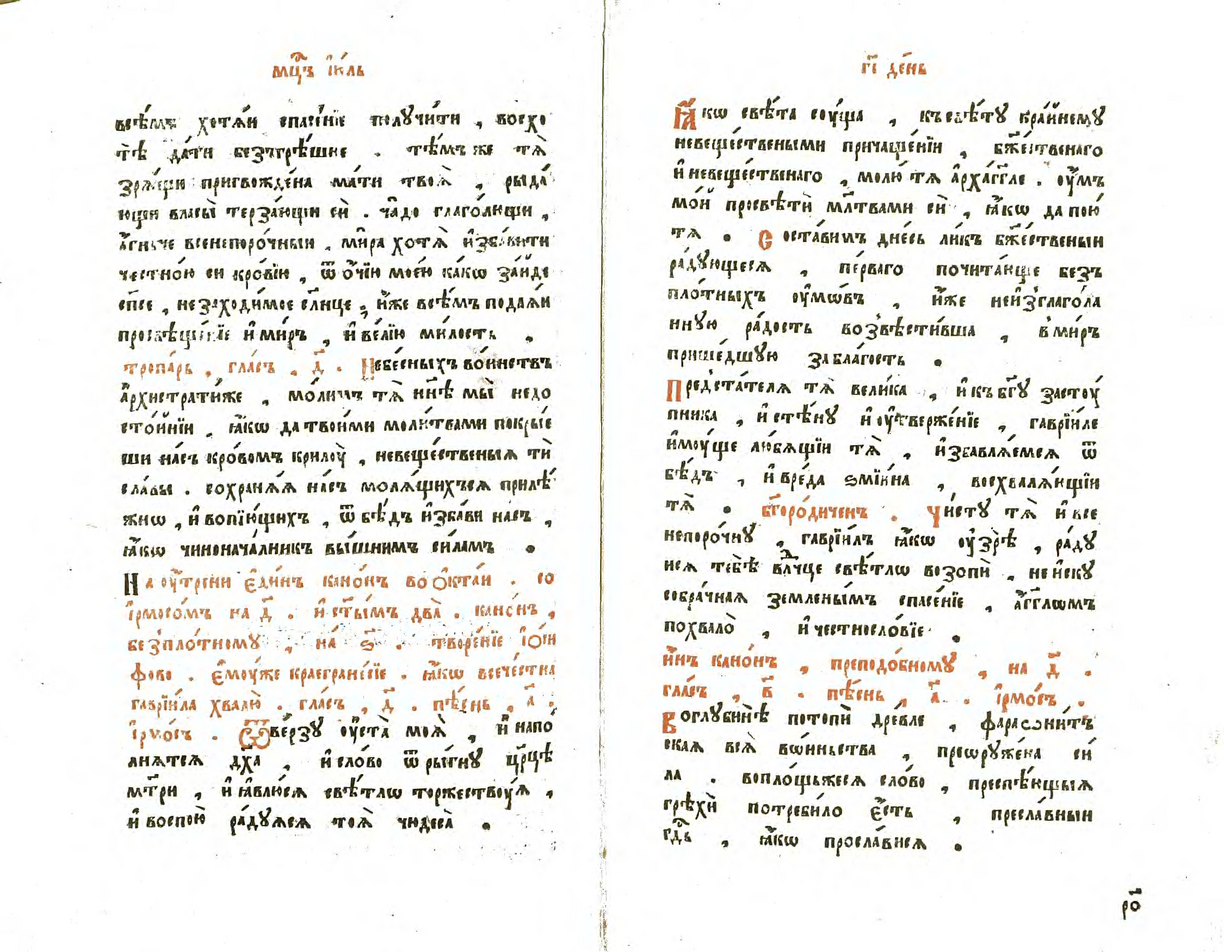 мц҃ъ і҆ю́ль
всѣ́мъ хотѧ́и спасе́нїе получи́ти , восхо
тѣ̀ да́ти безъгрѣ́шне . тѣ́мъ же тѧ̀
зрѧ́щи пригвожде́на ма́ти твоѧ̀ , рыда́
ющи власы̀ терза́ющи сѝ . ча́до глаго́лющи ,
а҆́гньче всенепоро́чныи , ми́ра хотѧ̀ и҆зба́вити
честно́ю си кро́вїю , ѿ ѻ҆чїю моє́ю ка́кѡ за́йде
сп҃се , незаходи́мое сл҃нце , и҆́же всѣ́мъ подаѧ́и
просвѣще́нїе и҆ ми́ръ , и҆ ве́лїю ми́лость .
тропа́рь , гла́съ , д҃ . Небе́сныхъ во́инствъ
а҆рхистрати́же , мо́лимъ тѧ̀ нн҃ѣ мы̀ недо
сто́йнїи , ꙗ҆́кѡ да твои́ми моли́твами покры́е
ши на́съ кро́вомъ крилꙋ̀ , невеще́ственыѧ тѝ
сла́вы . сохранѧ́ѧ на́съ молѧ́щихъсѧ прилѣ́
жнѡ , и҆ вопїю́щихъ , ѿ бѣ́дъ и҆зба́ви на́съ ,
ꙗ҆́кѡ чинонача́лникъ вы́шнимъ си́ламъ .
На ᲂу҆́трени є҆ди́нъ кано́нъ во ѻ҆кта́и . со
і҆рмосо́мъ на д҃ . и҆ ст҃ы́мъ два̀ . кано́нъ ,
безпло́тному , на ѕ҃ . творе́нїе і҆ѡ́си
фово . є҆мꙋ́же краегране́сїе . ꙗ҆́кѡ всече́стна
гаврїи́ла хвалю̀ . гла́съ , д҃ . пѣ́снь , а҃ .
і҆рмо́съ . Ѿве́рзу ᲂу҆ста̀ моѧ̀ , и҆ напо́
лнѧтсѧ дх҃а , и҆ сло́во ѿры́гну цр҃цѣ
мт҃ри , и҆ ꙗ҆влю́сѧ свѣ́тлѡ торжествꙋ́ѧ ,
и҆ воспою̀ ра́дуѧсѧ тоѧ̀ чюдеса̀ .
гі҃ де́нь
Ꙗ҆́кѡ свѣ́та сꙋ́ща , къ свѣ́ту кра́йнему
невеще́ствеными причаще́нїи , бж҃е́ственаго
и҆ невеще́ственаго , молю́ тѧ а҆рха́гг҃ле . ᲂу҆́мъ
мо́й просвѣтѝ мл҃твами сѝ , ꙗ҆́кѡ да пою̀
тѧ̀ . Соста́вимъ дне́сь ли́къ бж҃е́ственыи
ра́дующесѧ , пе́рваго почита́юще безъ
пло́тныхъ ᲂу҆мѡ́въ , и҆́же неи҆зглаго́ла
нную ра́дость возвѣсти́вша , в ми́ръ
прише́дшую за бла́гость .
Предста́телѧ тѧ̀ вели́ка , и҆ къ бг҃у застꙋ́
пника , и҆ стѣ́ну и҆ ᲂу҆тверже́нїе , гаврїи́ле
и҆мꙋ́ще лю́бѧщїи тѧ̀ , и҆збавлѧ́емсѧ ѿ
бѣ́дъ , и҆ вре́да ѕмїи́на , восхвалѧ́ющїи
тѧ̀ . бг҃оро́диченъ . Чи́сту тѧ̀ и҆ все
непоро́чну , гаврїи́лъ ꙗ҆́кѡ ᲂу҆зрѣ̀ , ра́ду
исѧ тебѣ̀ влⷣчце свѣ́тлѡ возопѝ , неиску
собра́чнаѧ земле́нымъ спасе́нїе , а҆́гг҃лѡмъ
похвало̀ , и҆ честносло́вїе .
и҆́нъ кано́нъ , преподо́бному , на д҃ .
гла́съ , в҃ . пѣ́снь , а҃ . і҆рмо́съ .
Во глубинѣ̀ потопѝ дре́вле , фараѡни́тъ
скаѧ всѧ̀ вѡ́инъства , преѡруже́на си́
ла . вопло́щьжесѧ сло́во , преспѣ́ющыѧ
грѣхѝ потреби́ло є҆́сть , пресла́вныи
гдⷭ҇ь , ꙗ҆́кѡ просла́висѧ .
ро҃